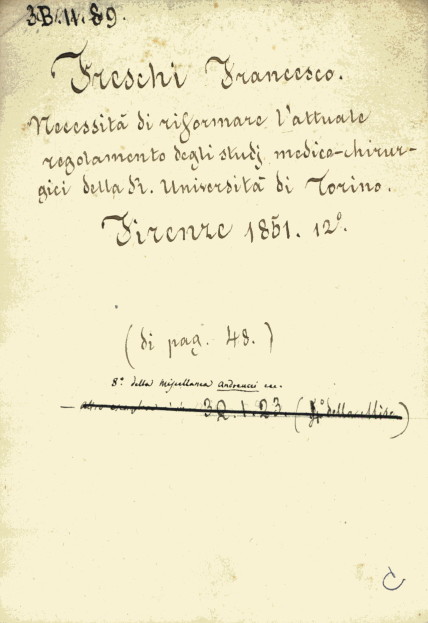 3B.11.89.
Freschi Francesco.
Necessità di riformare l'attuale
regolamento degli studj medico-chirur-
gici della R. Università di Torino.
Firenze 1851. 12º.
(di pag. 48.)
8.º della Miscellanea Andreucci ecc.
— 32.1.23. (